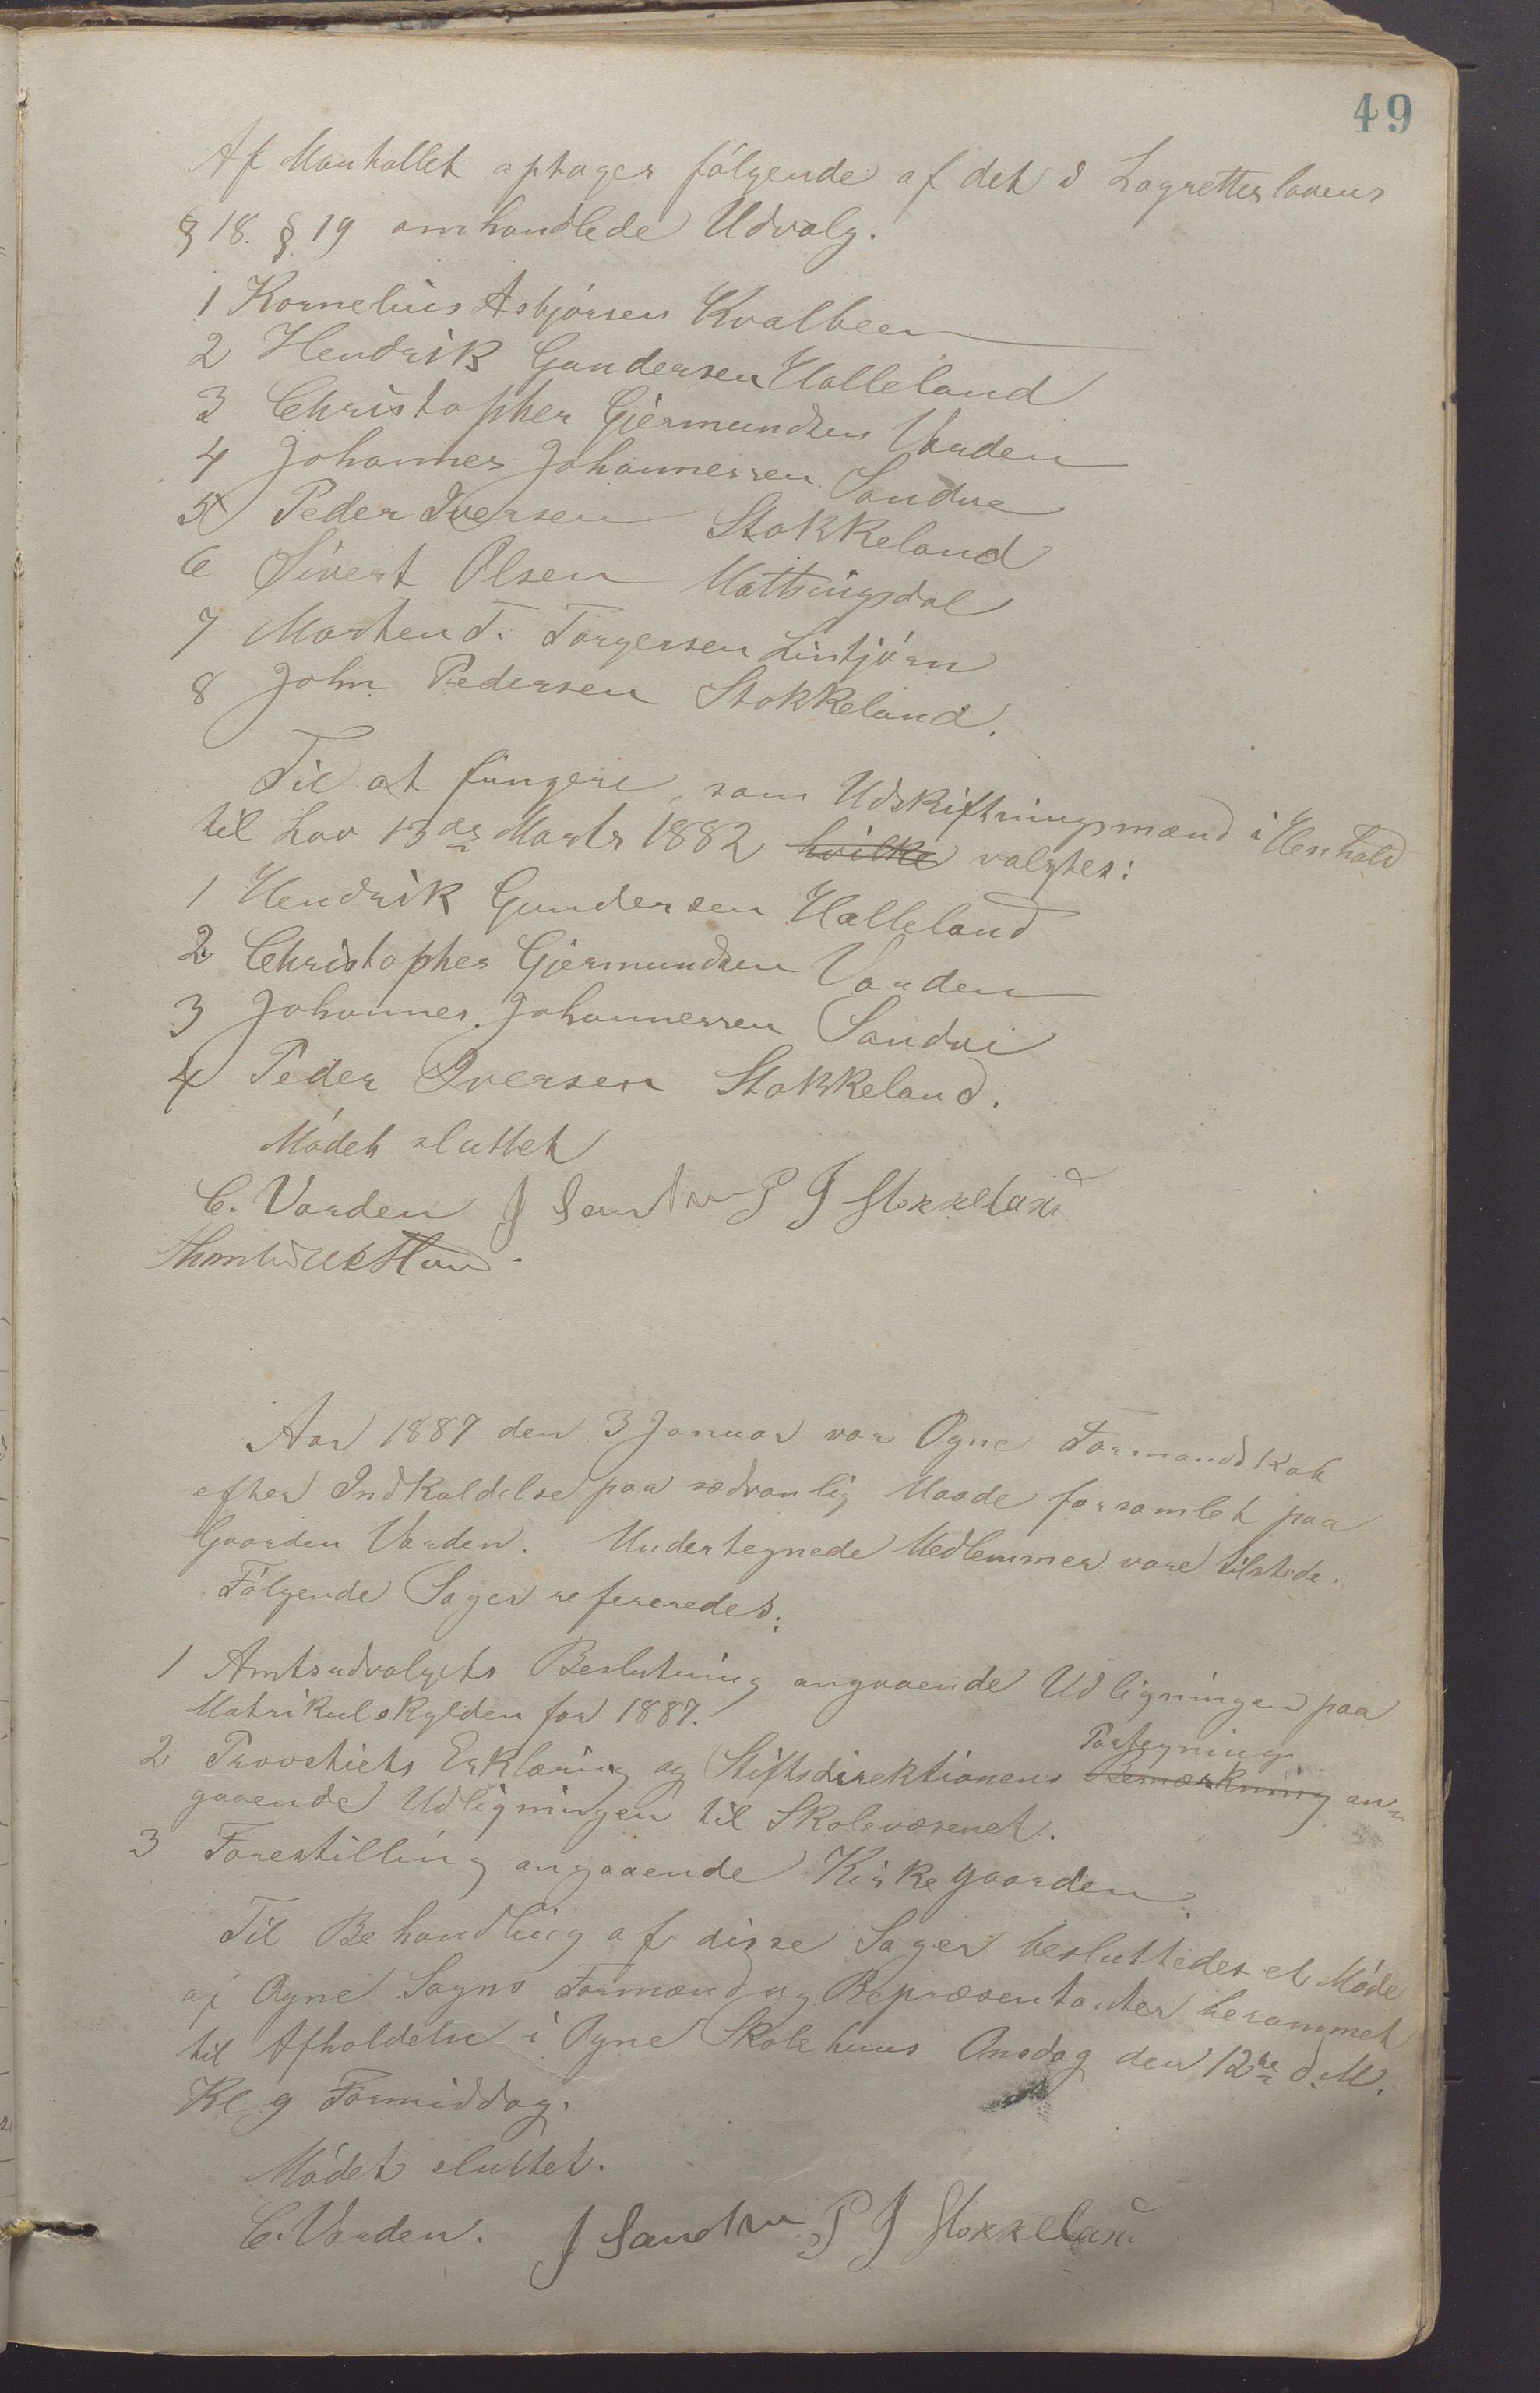 49
Af Mantallet optager følgende af det i Lagretteslovens
§ 18. § 19 omhandlede Udvalg.
1 Kornelius Asbjørsen Kvalbeen
2 Hendrik Gundersen Halleland
3 Christopher Gjermundsen Varden
4 Johannes Johannessen Sandve
5 Peder Iversen Stokkeland
6 Sivert Olsen Mattingsdal
7 Morten T. Torgersen Lintjørn
8 John Pedersen Stokkeland.
Til at fungere som Udskiftningsmænd i Henhold
til Lov 13de Marts 1882 hvilke valgtes:
1 Hendrik Gundersen Halleland
2 Christopher Gjermundsen Varden
3 Johannes Johannessen Sandve
4 Peder Iversen Stokkeland.
Mødet sluttet
C. Varden J Sandve P J Stokkeland
Aar 1887 den 3 Januar var Ogne Formandskab
efter Indkaldelse paa sædvanlig Maade forsamlet paa
Gaarden Varden. Undertegnede Medlemmer vare tilstede.
Følgende Sager refereredes:
1 Amtsudvalgets Beslutning angaaende Udligningen paa
Matrikulskylden for 1887.
Paategning
2 Provstiets Erklæring og Stiftsdirektionens Bemærkning an-
gaaende Udligningen til Skolevæsenet.
3 Forestilling angaaende Kirkegaarden.
Til Behandling af disse Sager besluttedes et Møde
af Ogne Sogns Formænd og Repræsentanter berammet
til Afholdelse i Ogne Skolehuus Onsdag den 12te d. M.
Kl 9 Formiddag.
Mødet sluttet.
C. Varden. J Sandve P J Stokkeland